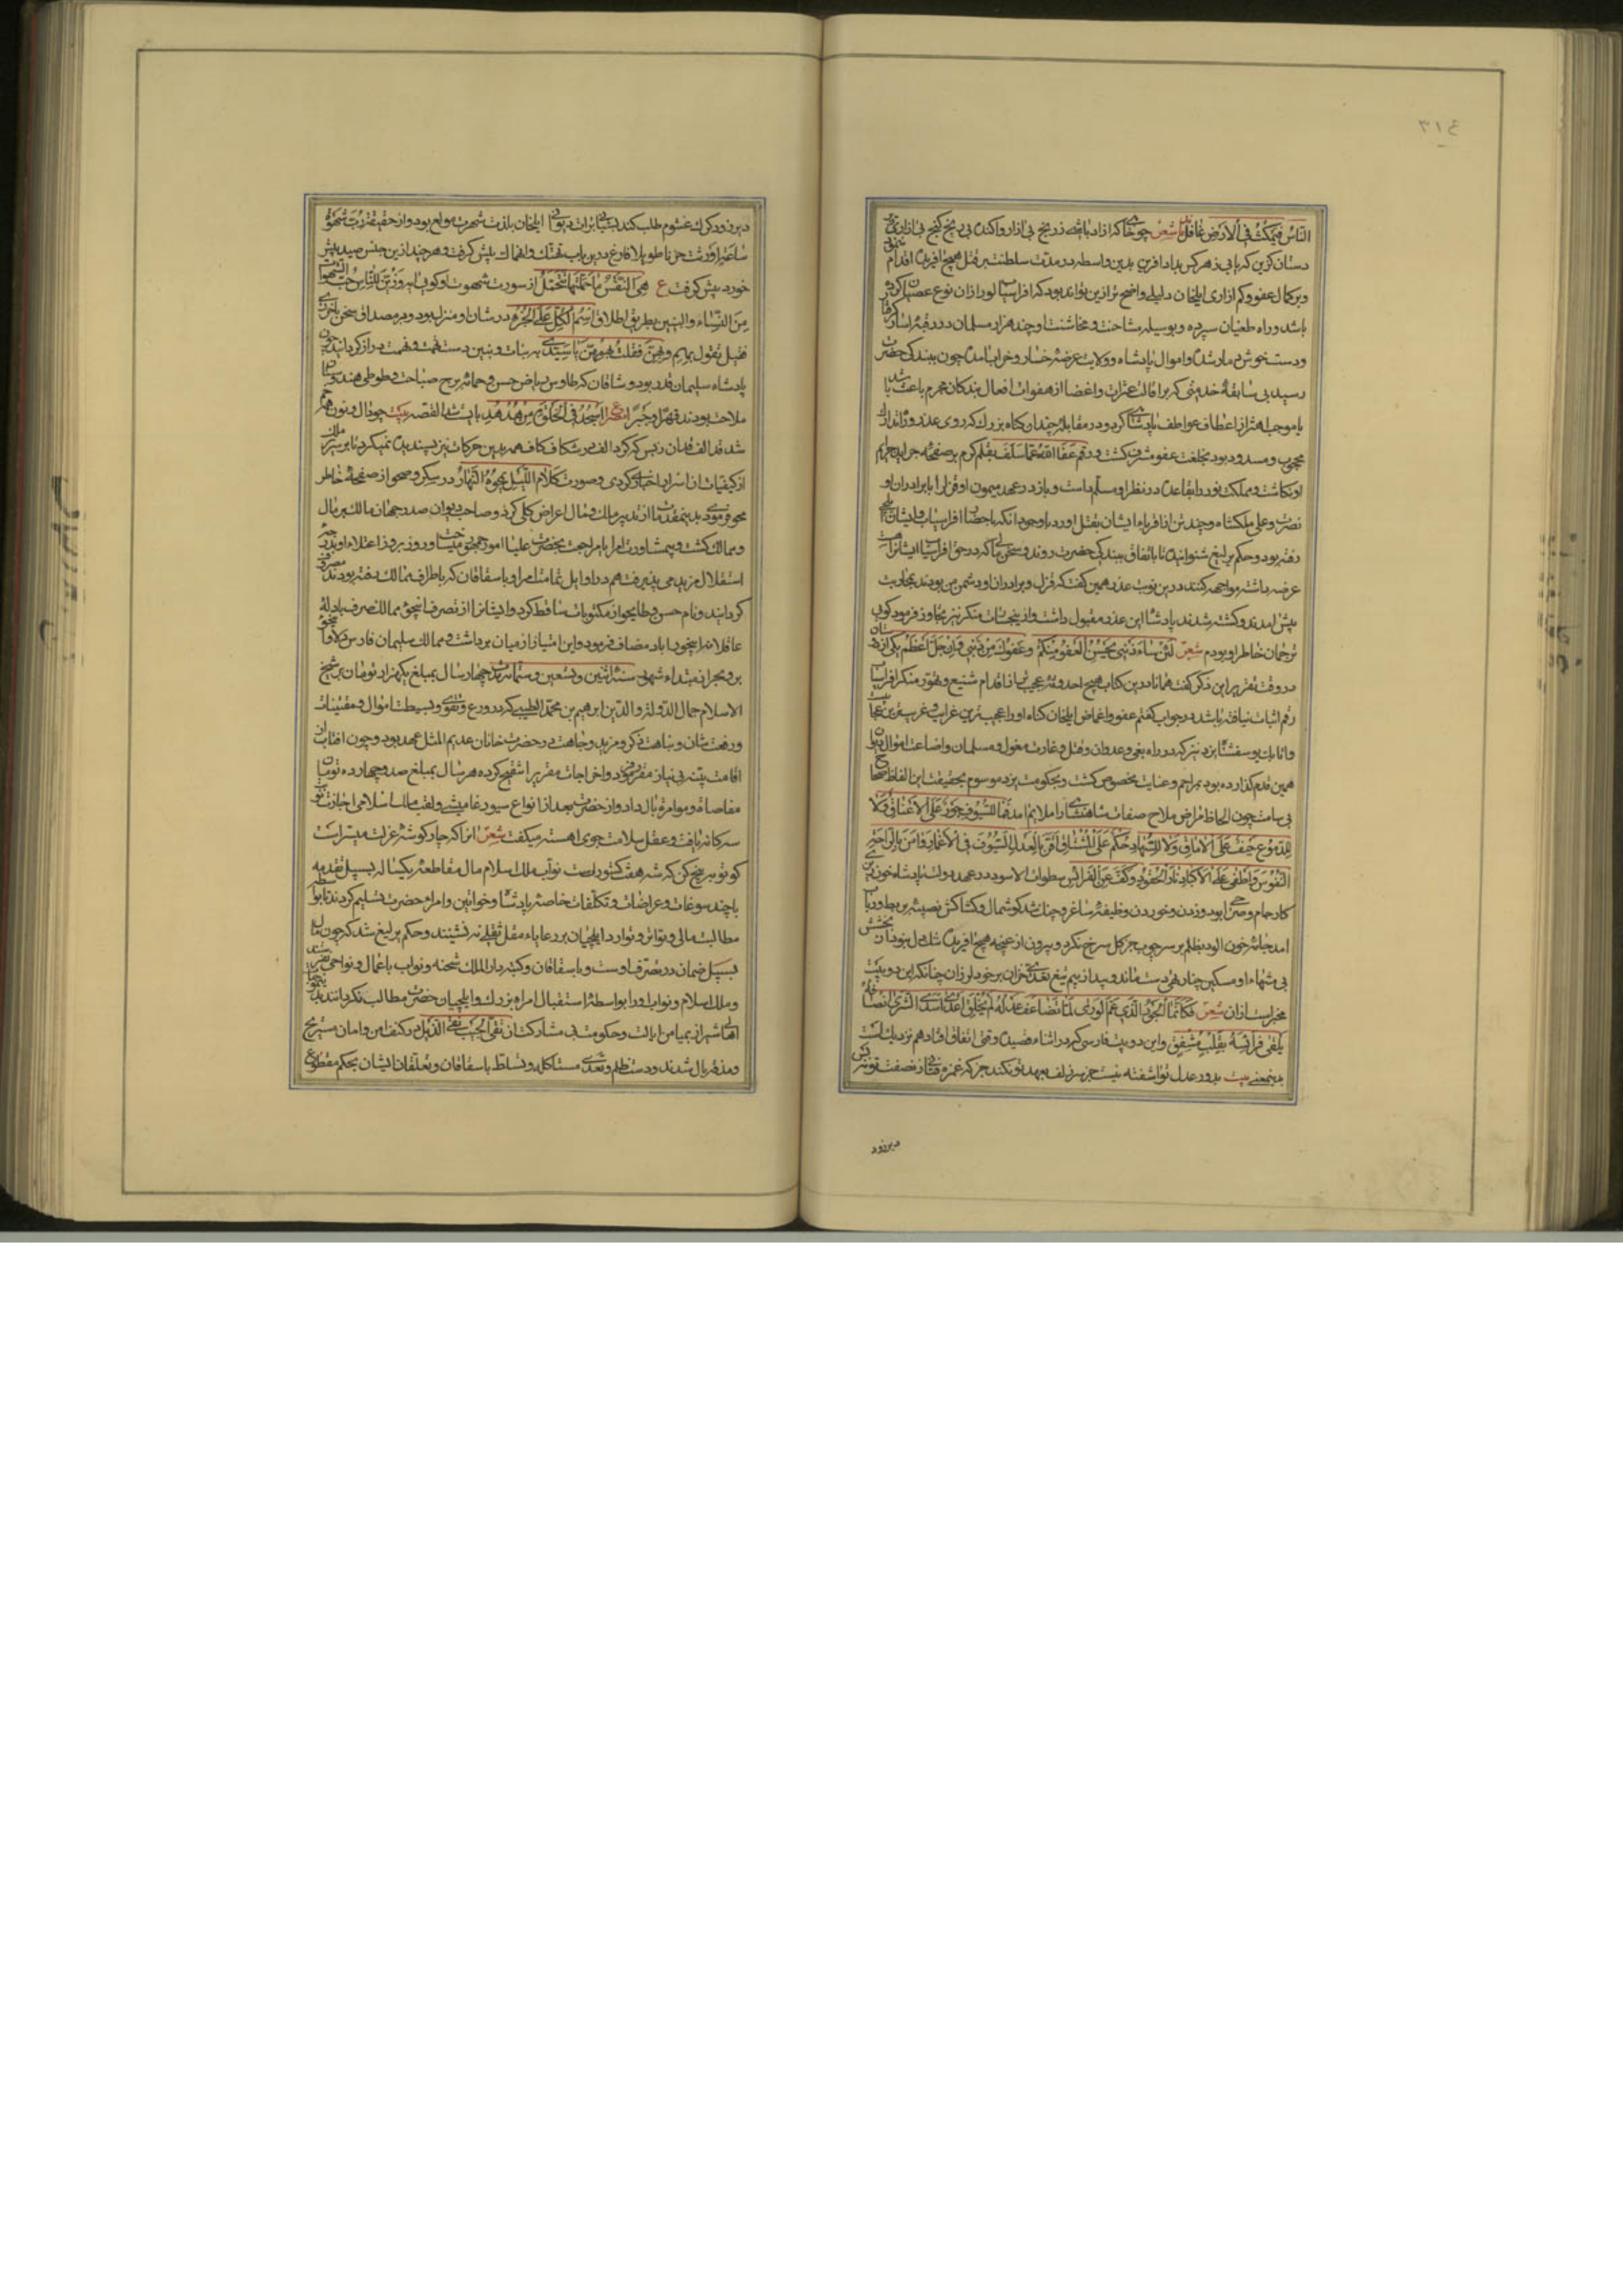 ٣١٤
الناس فیمکث فی الارض غافل شعر چو خا کر ازاد باشد ز رنج بی ازار واکند بی رنج کنج بی ازاری
دستان کزین که یابی ز هر کس بداد افرین بدین واسطه در مدت سلطنت بر قتل هیچ افریده اقدام
و بر کمال عفو و کم ازاری ایلخان دلیلی واضح تر ازین تواند بود که افراسیاب لور ازان نوع عصیان کرده
باشد و راه طغیان سپرده و بوسیله مشاحنت و مخاشنت او چند هزار مسلمان در ربقه اسار
و دست خوش دمار شده و اموال پادشاه و ولایت عرضه خسار و خراب امده چون ببندکی حضرت
رسید بی سابقه خدمتی که بر اقالت عثرات و اغضا از هفوات افعال بندکان مجرم باعث باشد
یا موجب اهتزاز اعطاف عواطف پادشاهی کردد و در مقابله چندان کناه بزرک که روی عذر و تدارک
محجوب و مسدود بود بخلعت عفو مشرف کشت و رقم عفا الله عما سلف بقلم کرم بر صفحه جراید جرایم
او نکاشت و مملکت لور را بقاعده در نظر او مسلم داشت و باز در عهد میمون او قزل را با برادران او
نصرت و علی ملکشاه و چند تن از اقرباء ایشان بقتل اورد با وجود انکه باحضار افراسیاب و ایشان ایلچی
رفته بود و حکم یرلیغ شنوانیده تا باتفاق ببندکی حضرت روند و سخنی را که در حق افراسیاب ایشانرا هست
عرضه داشته مواجهه کنند درین نوبت عذر همین کفت که قزل و برادران او دشمن من بودند بمحاربت
پیش امدند و کشته شدند پادشاه این عذر مقبول داشت و از ینجنایات منکر نیز تجاوز فرمود کویی
ترجمان خاطر او بودم شعر لئن ساء ذنبی یحسن العفو منکم و عفوک من ذنبی و ان جل اعظم یکی از دوستان
در وقت تقریر این ذکر کفت همانا درین کتاب هیچ احدوثه عجیب تر از اقدام شنیع و تهور منکر افراسیاب
رقم اثبات نیافته باشد در جواب کفتم عفو و اغماض ایلخان کناه او را عجیب ترین غرایب و غریب ترین عجایب
و اتابک یوسفشاه یزد نیز که در راه بغی و عدوان و قتل و غارت مغول و مسلمان و اضاعت اموال دیوان
همین قدم کذارده بود بمراحم و عنایت مخصوص کشت و بحکومت یزد موسوم بحقیقت این الفاظ
بی سامت چون الحاظ مراض ملاح صفات شاهنشاهی را ملایم امد فما للسیوف جور علی الاعناق و لا
للدموع حیف علی الاماق و لا للسهاد حکم علی العشاق اقر بالعدل السیوف فی الاغماد و امن بالراحة
النفوس و اطفی علی الاکباد نار الحقود و کف عن الفرائس سطوات الاسود در عهد دولت پادشاه خون ریزی
کار جام و صراحی بود و زدن و خوردن وظیفه ساغر و چنک شد کوشمال و کشاکش نصیبه بربط و رباب
امد جامه خون الود بظلم بر سر چوب جز کل سرخ نکرد و بیرون از غنچه هیچ افریده تنک دل نبود از بخشش
بی شمار او مسکین چنار تهی دست ماند و بید از بیم تیغ تعدی خزان بر خود لرزان چنانکه این دو بیت
مخبر است ازان شعر فکانما الجود الذی عم الوری لما تضاعف عدله لم یخلق اعدی اسدی الشری انصافه
یلقی فراسة بقلب مشفق و این دو بیت فارسی که در اثناء قصیده وقتی اتفاق افتاد هم نزدیک است
بدینمعنی بیت بدور عدل تو اشفته نیست جز سر زلف بعهد تو نکند جز که غمزه فتانی ز نصفت تو نه
دیرزود
دیرزود کرک غشوم طلب کند بشبانی برات دیوانی ایلخان بلذت شهوت مولع بود و از حقیقت رب شهوة
ساعة اورثت حزنا طویلا فارغ درین باب تهتک و انهماک پیش کرفت و هر چند ازین جنس صید بیش
خورد بیش کرفت ع هی النفس ما حملتها تتحمل از سورت شهوت او کویی ابروز زین للناس حب الشهوات
من النساء و البنین بطریق اطلاق اسم الکل علی الجزء در شان او منزل بود و بر مصداق سخن
فقیل تقول بهایم و هن فقلت بهو هن یا سیدی بر بنات و بنین دست نهمت و همت دراز کردانید چون
پادشاه سلیمان قدر بود و شاقان که طاوس ریاض حسن و حمائم برج صباحت و طوطی هندوستان
ملاحت بودند قهرا و جبرا مصرع اسجد فی الخلوة من هدهد بایست شد القصه بیت چو دال و نون همه
شد قد الف قدان ز بس که کرد الف در شکاف کاف همه بدین حرکات نیز بسنده نمیکرد تا بر سر ملا
از کیفیات ان اسرار اخبار کردی و صورت کلام اللیل یمحوه النهار در سکر و صحو از صفحه خاطر
محو فرمودی بدینمقدمات از تدبیر ملک و مال اعراض کلی کرد و صاحب دیوان صدر جهان مالک بر مال
و ممالک کشت و بمشاورت امرا یا مراجعت بحضرت علیا امور جمهور میساخت و روز بروز اعتلاء او بدرجه
استقلال مزید می پذیرفت هم در اوایل تمامت امرا و باسقاقان که باطراف ممالک رفته بودند معزول
کردانید و نام حسن و طایجو از مکتوبات ساقط کرد و ایشانرا از تصرف اینجو ممالک صرف باد
عاقلانه اینجو را با دلا مضاف فرمود و این امتیاز از میان برداشت و ممالک سلیمان فارس دلا و اینجو
بر و بحر از مبتداء شهور سنة اثنین و تسعین و ستمائه تا مدت چهار سال بمبلغ یکهزار تومان بر شیخ
الاسلام جمال الدولة و الدین ابرهیم بن محمد الطیبی که در ورع و تقوی و بسیطت اموال و مقتنیات
و رفعت شان و نباهت ذکر و مزید وجاهت در حضرت خانان عدیم المثل عهد بود و چون افتاب از
اقامت بینه بی نیاز مقرر فرمود و اخراجات مقرر را تنقیح کرده هر سال بمبلغ صد و چهارده تومان
مفاصاة و موامره باز داد و از حضرت بعد از انواع سیورغامیشی و لقب ملک اسلامی اجازت
سرکانه یافت و عقل سلامت جوی اهسته میکفت شعر انرا که چار کوشه عزلت میسر است
کو نوبه پنج کن که شه هفت کشور است نواب ملک اسلام مال مقاطعه یکساله بسبیل تقدمه
با چند سوغات و عراضات و تکلفات خاصه پادشاه و خواتین و امراء حضرت تسلیم کردند تا بواسطه
مطالبت مالی و تواتر و توارد ایلچیان بر رعایا بار مقل ثقلی نه نشیند و حکم یرلیغ شد که چون ممالک
بسبیل ضمان در تصرف اوست و باسقاقان و کتبه دار الملک شحنه و نواب باعمال و نواحی
و ملک اسلام و نواب او را بواسطه استقبال امراء بزرک و ایلچیان حضرت مطالب نکردانند
اهالی شیراز بمیامن ایالت و حکومت بی مشارکت ان نقی الجیب تقی الذیل در کنف امن و امان مستریح
و مرفه بال شدند و دست ظلم و تعدی مستاکله و تسلط باسقاقان و تعلقان ایشان بحکم مقطوع